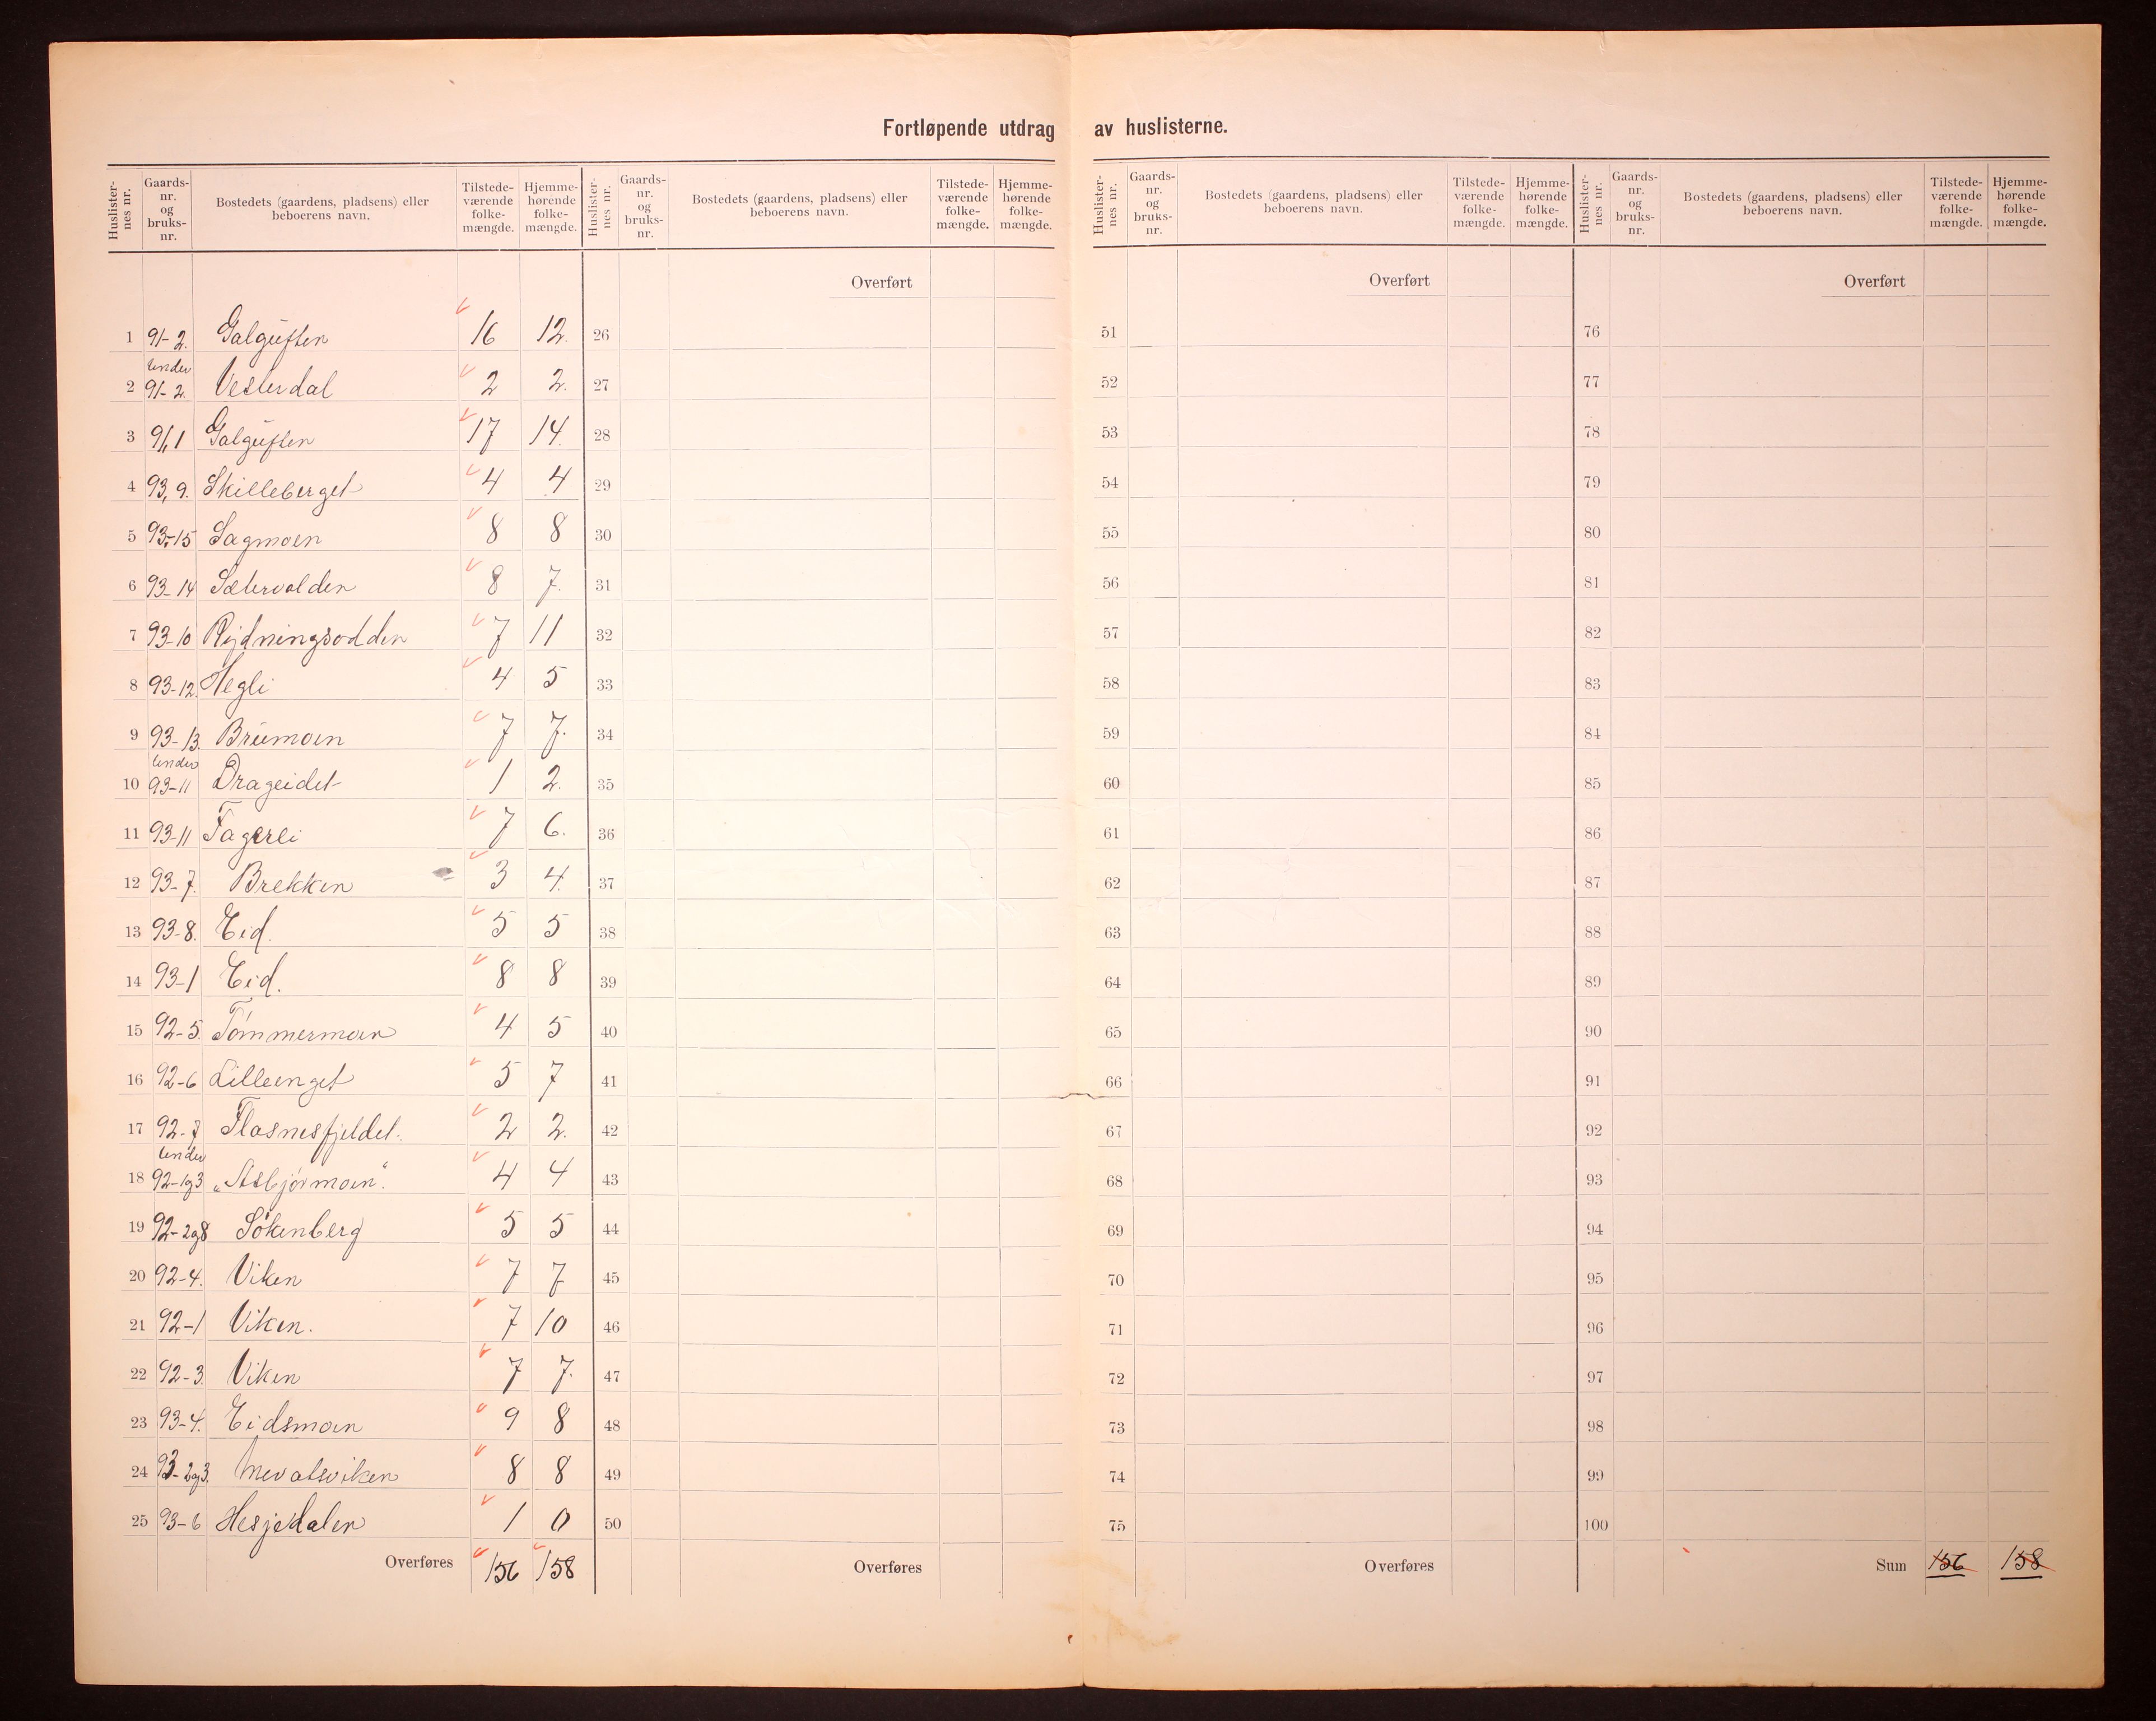 Fortløpende utdrag av huslisterne.
Huslister-nes nr. Gaards-nr. og bruks-nr. Bostedets (gaardens, pladsens) eller beboerens navn. Tilstede-værende folke-mængde. Hjemme-hørende folke-mængde. Huslister-nes nr. Gaards-nr. og bruks-nr. Bostedets (gaardens, pladsens) eller beboerens navn. Tilstede-værende folke-mængde. Hjemme-hørende folke-mængde. Huslister-nes nr. Gaards-nr. og bruks-nr. Bostedets (gaardens, pladsens) eller beboerens navn. Tilstede-værende folke-mængde. Hjemme-hørende folke-mængde. Huslister-nes nr. Gaards-nr. og bruks-nr. Bostedets (gaardens, pladsens) eller beboerens navn. Tilstede-værende folke-mængde. Hjemme-hørende folke-mængde.
Overført Overført Overført
1 91-2. Galguften 16 12. 26 51 76
under
2 91-2. Vesterdal 2 2. 27 52 77
3 91,1 Galguften 17 14. 28 53 78
4 93,9. Skilleberget 4 4 29 54 79
5 93-15 Sagmoen 8 8 30 55 80
6 93-14 Sætervolden 8 7. 31 56 81
7 93-10 Rydningsodden 7 11 32 57 82
8 93-12. Hegli 4 5 33 58 83
9 93-13. Brumoen 7 7. 34 59 84
under
10 93-11 Drageidet 1 2. 35 60 85
11 93-11 Fagerli 7 6. 36 61 86
12 93-7. Brekken 3 4. 37 62 87
13 93-8. Eid. 5 5 38 63 88
14 93-1 Eid. 8 8 39 64 89
15 92-5. Tømmermoen 4 5 40 65 90
16 92-6 Lilleenget 5 7 41 66 91
17 92-7 Flasnesfjeldet. 2 2. 42 67 92
under
18 92-1og3 „Asbjørmoen". 4 4 43 68 93
19 92-2og8 Søkenberg 5 5 44 69 94
20 92-4. Viken 7 7 45 70 95
21 92-1 Viken. 7 10 46 71 96
22 92-3. Viken 7 7. 47 72 97
23 93-4. Eidsmoen 9 8 48 73 98
24 93-2og3. Mevatsviken 8 8 49 74 99
25 93-6 Hesjedalen 1 0 50 75 100
Overføres 156 158 Overføres Overføres Sum 156 158